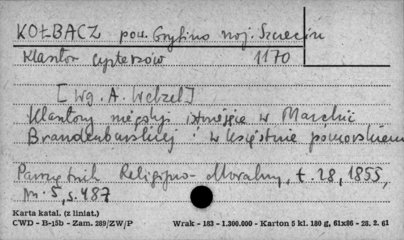 KOŁBACZ pow. Gryfino woj. Szczecin
Klasztor cystersów 1170
[Wg. A. Wetzel]
Klasztory niegdyś istniejące w Marchii
Brandenburskiej i w Księstwie pomorskiem
Pamiętnik Religijno-Moralny, t. 28, 1855,
nr. 5, s. 487
Karta katal. (z liniat.)
CWD - B-15b - Zam. 289/ZW/P Wrak - 183 - 1.300.000 - Karton 5 kl. 180 g, 61x86 - 28. 2. 61